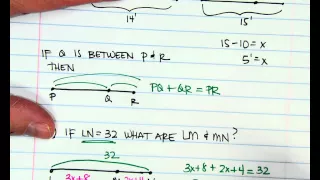 14'
15'
15-10=x
5'=x
IF Q IS BETWEEN P&R
THEN
PQ+QR=PR
P Q R
) IF LN=32 WHAT ARE LM & MN?
32
3x+8+2x+4=32
3x+8